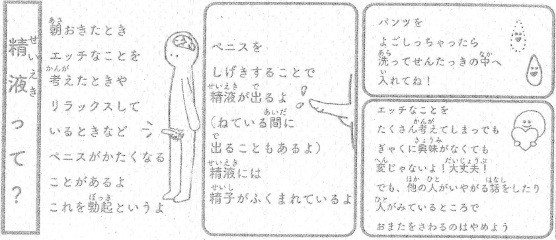 精液って？
朝おきたとき
エッチなことを
考えたときや
リラックスして
いるときなど
ペニスがかたくなる
ことがあるよ
これを勃起というよ
ペニスを
しげきすることで
精液が出るよ
(ねている間に
出ることもあるよ)
精液には
精子がふくまれているよ
パンツを
よごしっちゃったら
洗ってせんたっきの中へ
入れてね！
エッチなことを
たくさん考えてしまっても
ぎゃくに興味がなくても
変じゃないよ！大丈夫！
でも、他の人がいやがる話をしたり
人がみているところで
おまたをさわるのはやめよう